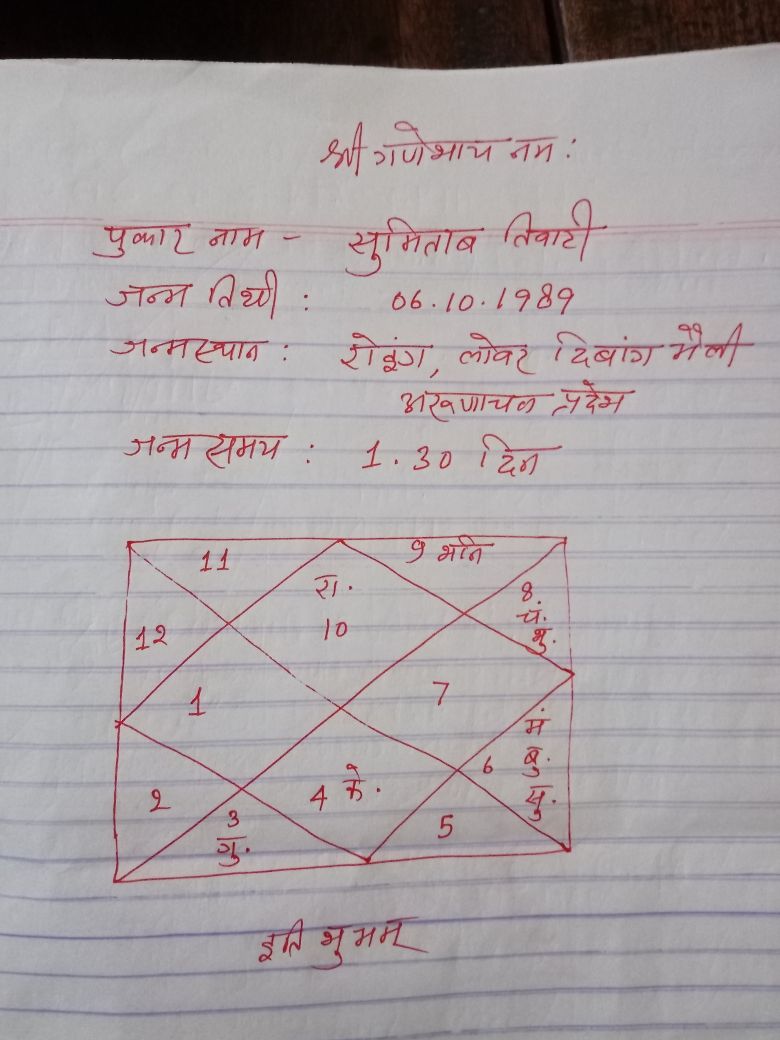 श्री गणेशाय नमः
पुकार नाम - सुमिताब तिवारी
जन्म तिथी : 06.10.1989
जन्मस्थान : रोइंग, लोवर दिबांग भैली
अरुणाचल प्रदेश
जन्म समय : 1.30 दिन
11
9 शनि
रा.
10
8.
चं.
शु.
12
1
7
मं
बु.
सु.
6
2
3
गु.
4 के.
5
इति शुभम्